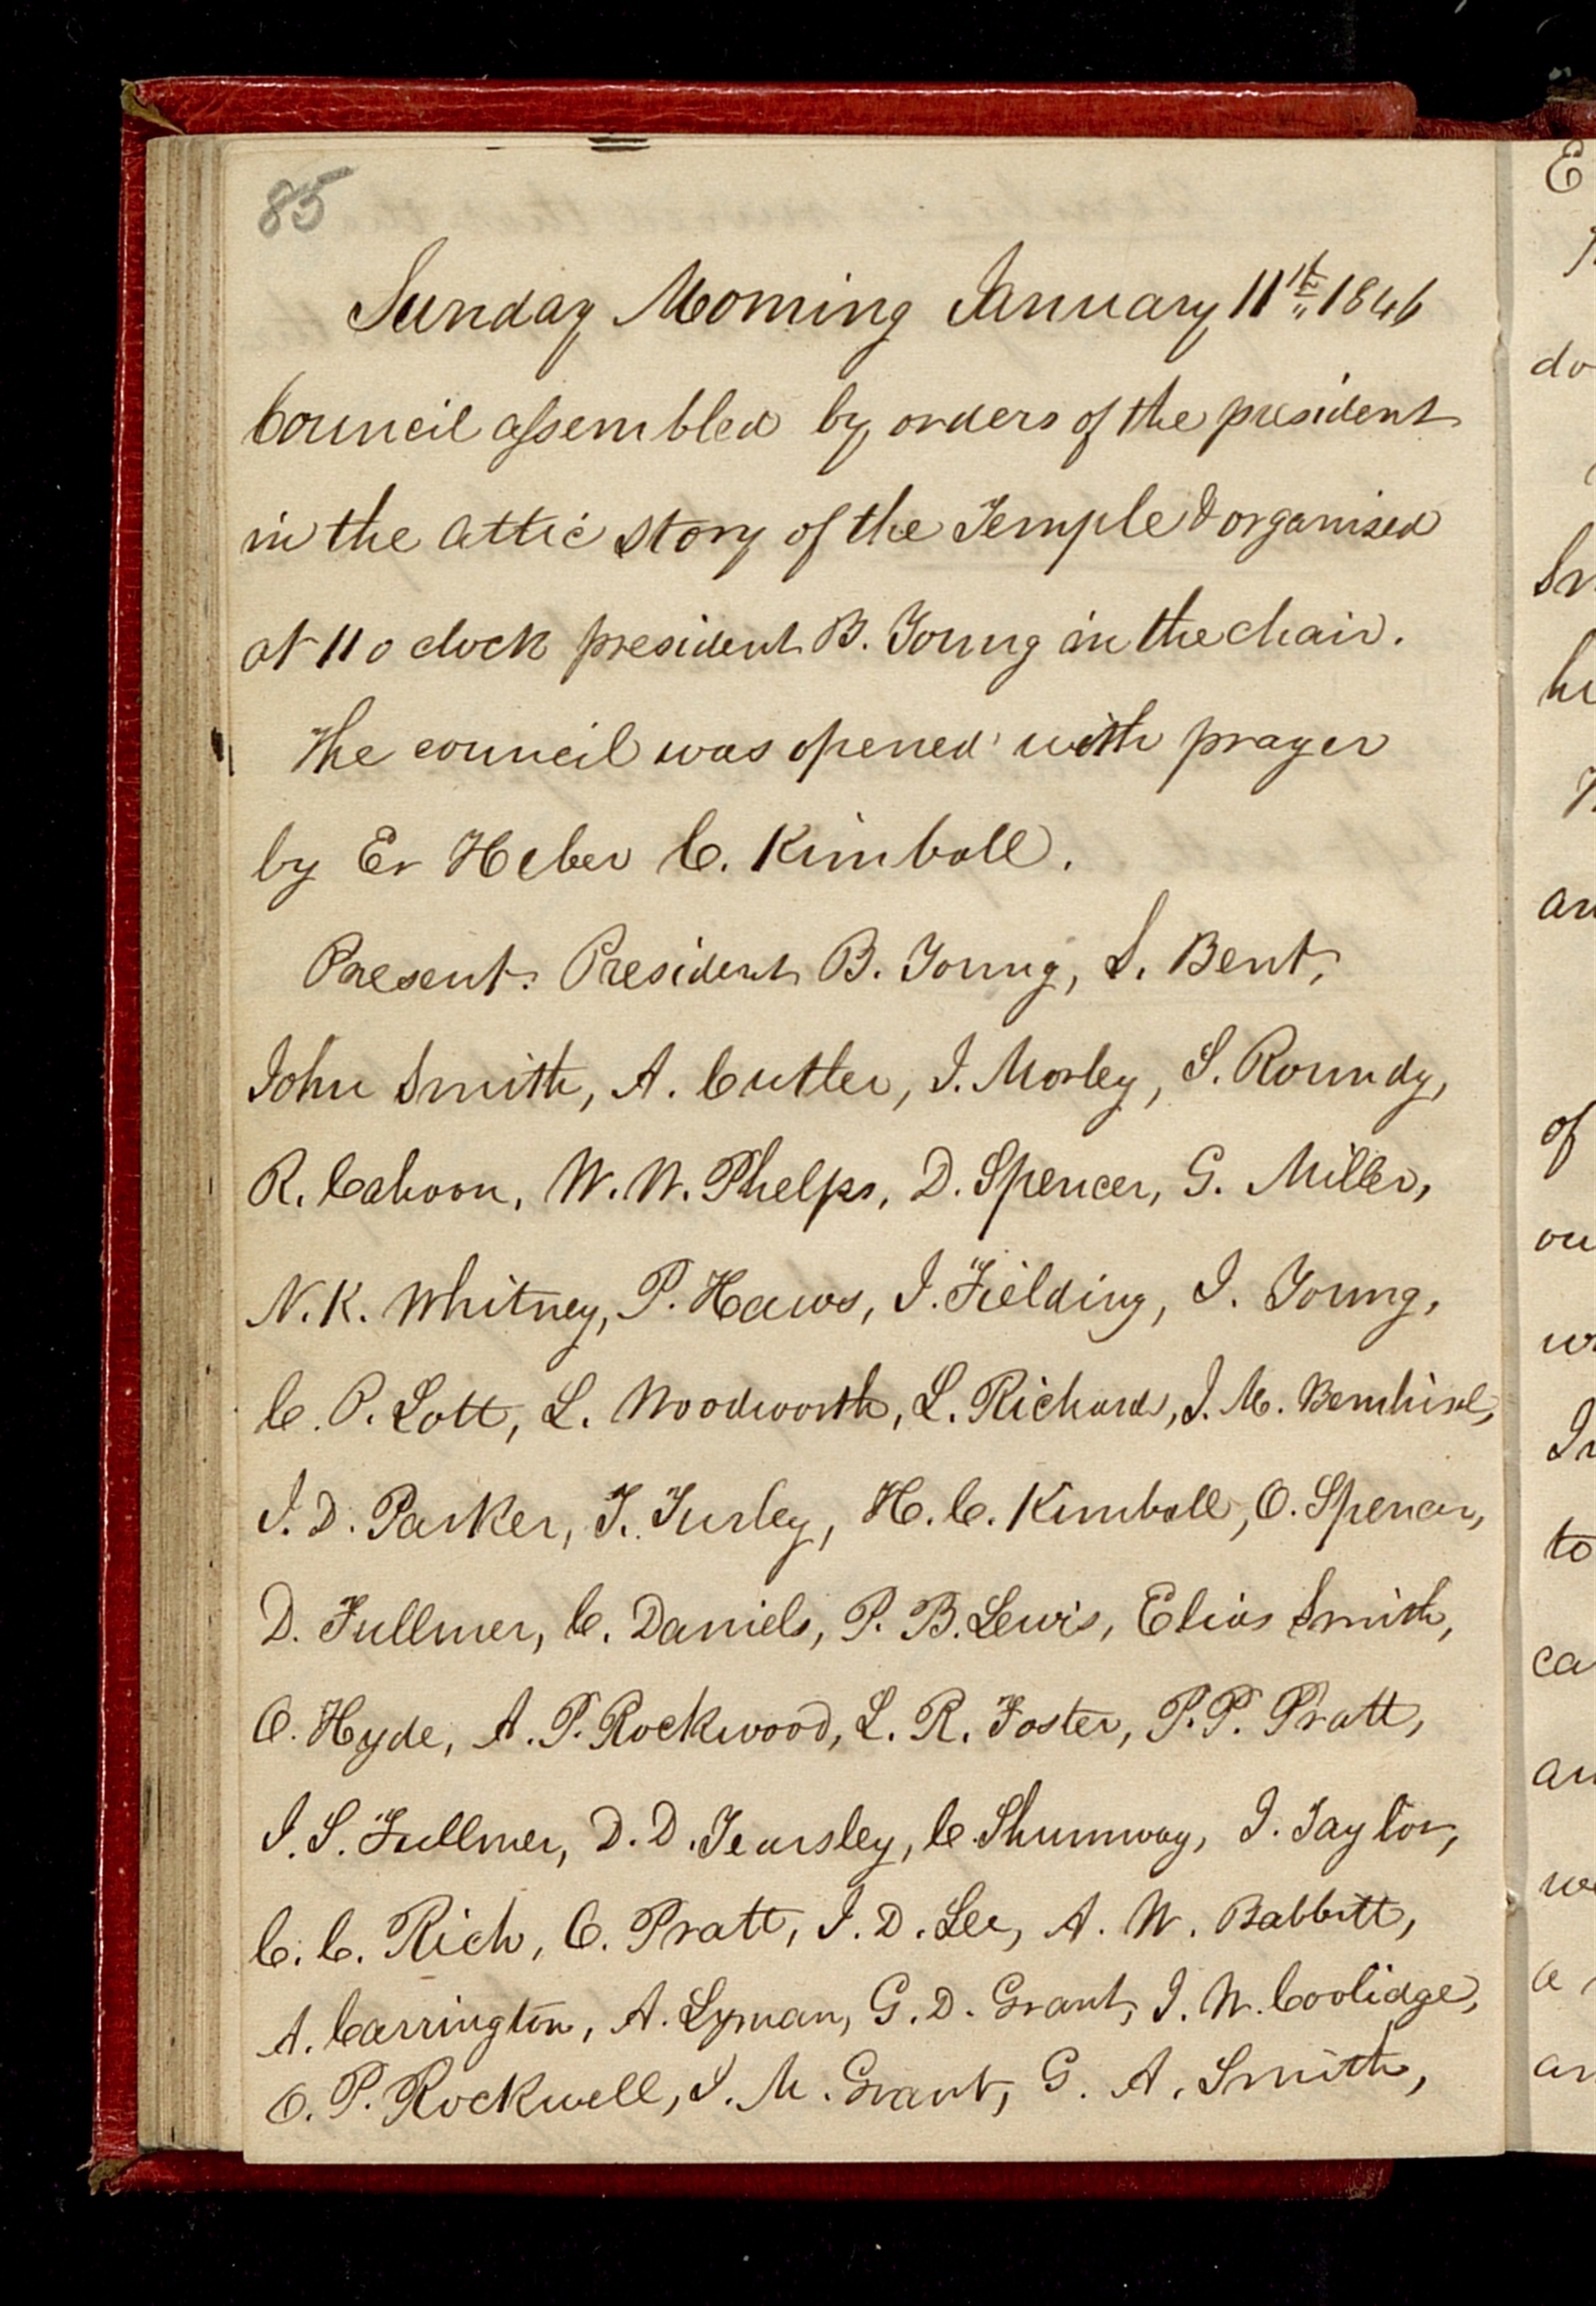 85
Sunday Morning January 11th 1846
Council assembled by orders of the president
in the attic story of the Temple & organised
at 11 o clock president B. Young in the chair.
The council was opened with prayer
by Er Heber C. Kimball.
Present. President B. Young, S. Bent,
John Smith, A. Cutler, I. Morley, S. Roundy,
R. Cahoon, W. W. Phelps, D. Spencer, G. Miller,
N. K. Whitney, P. Haws, J. Fielding, J. Young,
C. P. Lott, L. Woodworth, L. Richards, J. M. Bernhisel,
J. D. Parker, T. Turley, H. C. Kimball, O. Spencer,
D. Fullmer, C. Daniels, P. B. Lewis, Elias Smith,
O. Hyde, A. P. Rockwood, L. R. Foster, P. P. Pratt,
J. S. Fullmer, D. D. Yearsley, C. Shumway, J. Taylor,
C. C. Rich, O. Pratt, J. D. Lee, A. W. Babbitt,
A. Carrington, A. Lyman, G. D. Grant, J. W. Coolidge,
O. P. Rockwell, J. M. Grant, G. A. Smith,